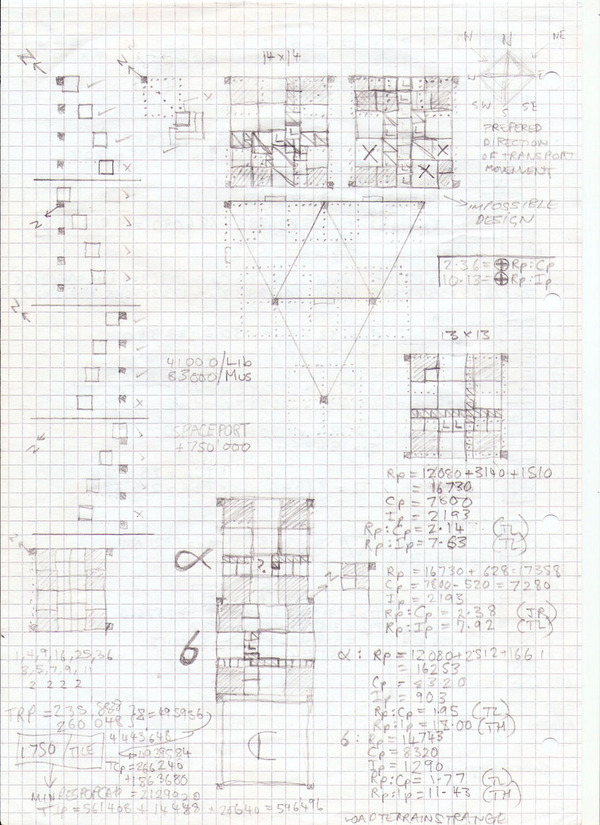 14x14
N
N
N
NE
W
SW
S
SE
PREPERED
DIRECTION
OF TRANSPORT
MOVEMENT
IMPOSSIBLE
DESIGN
2.36=⊕Rp:Cp
10.13=⊕Rp:Ip
41000/Lib
83000/Mus
13x13
SPACEPORT
+750 000
Rp = 12080+3140+1510
= 16730
Cp = 7800
Ip = 2193
Rp:Cp = 2.14 (TL)
Rp:Ip = 7.63 (TL)
Rp = 16730 + 628 = 17358
Cp = 7800-520 = 7280
Ip = 2193
Rp:Cp = 2.38
Rp:Ip = 7.92 (TL)
α
?
α: Rp = 12080+2512+1661
= 16253
Cp = 8320
Ip = 903
Rp:Cp = 1.95 (TL)
Rp:Ip = 18.00 (TH)
6
6: Rp = 14743
Cp = 8320
Ip = 1290
Rp:Cp = 1.77 (TL)
Rp:Ip = 11.43 (TH)
1,4,9,16,25,36
3,5,7,9,11
2 2 2 2
TRP = 235 888
260 048
= 495936
4 443 648
1750/TILE
4939584
TCp = 266240
+1863680
MIN
= 2129920
TIp = 561408 + 14448 + 20640 = 596496
LOADTERRAINSTRANGE